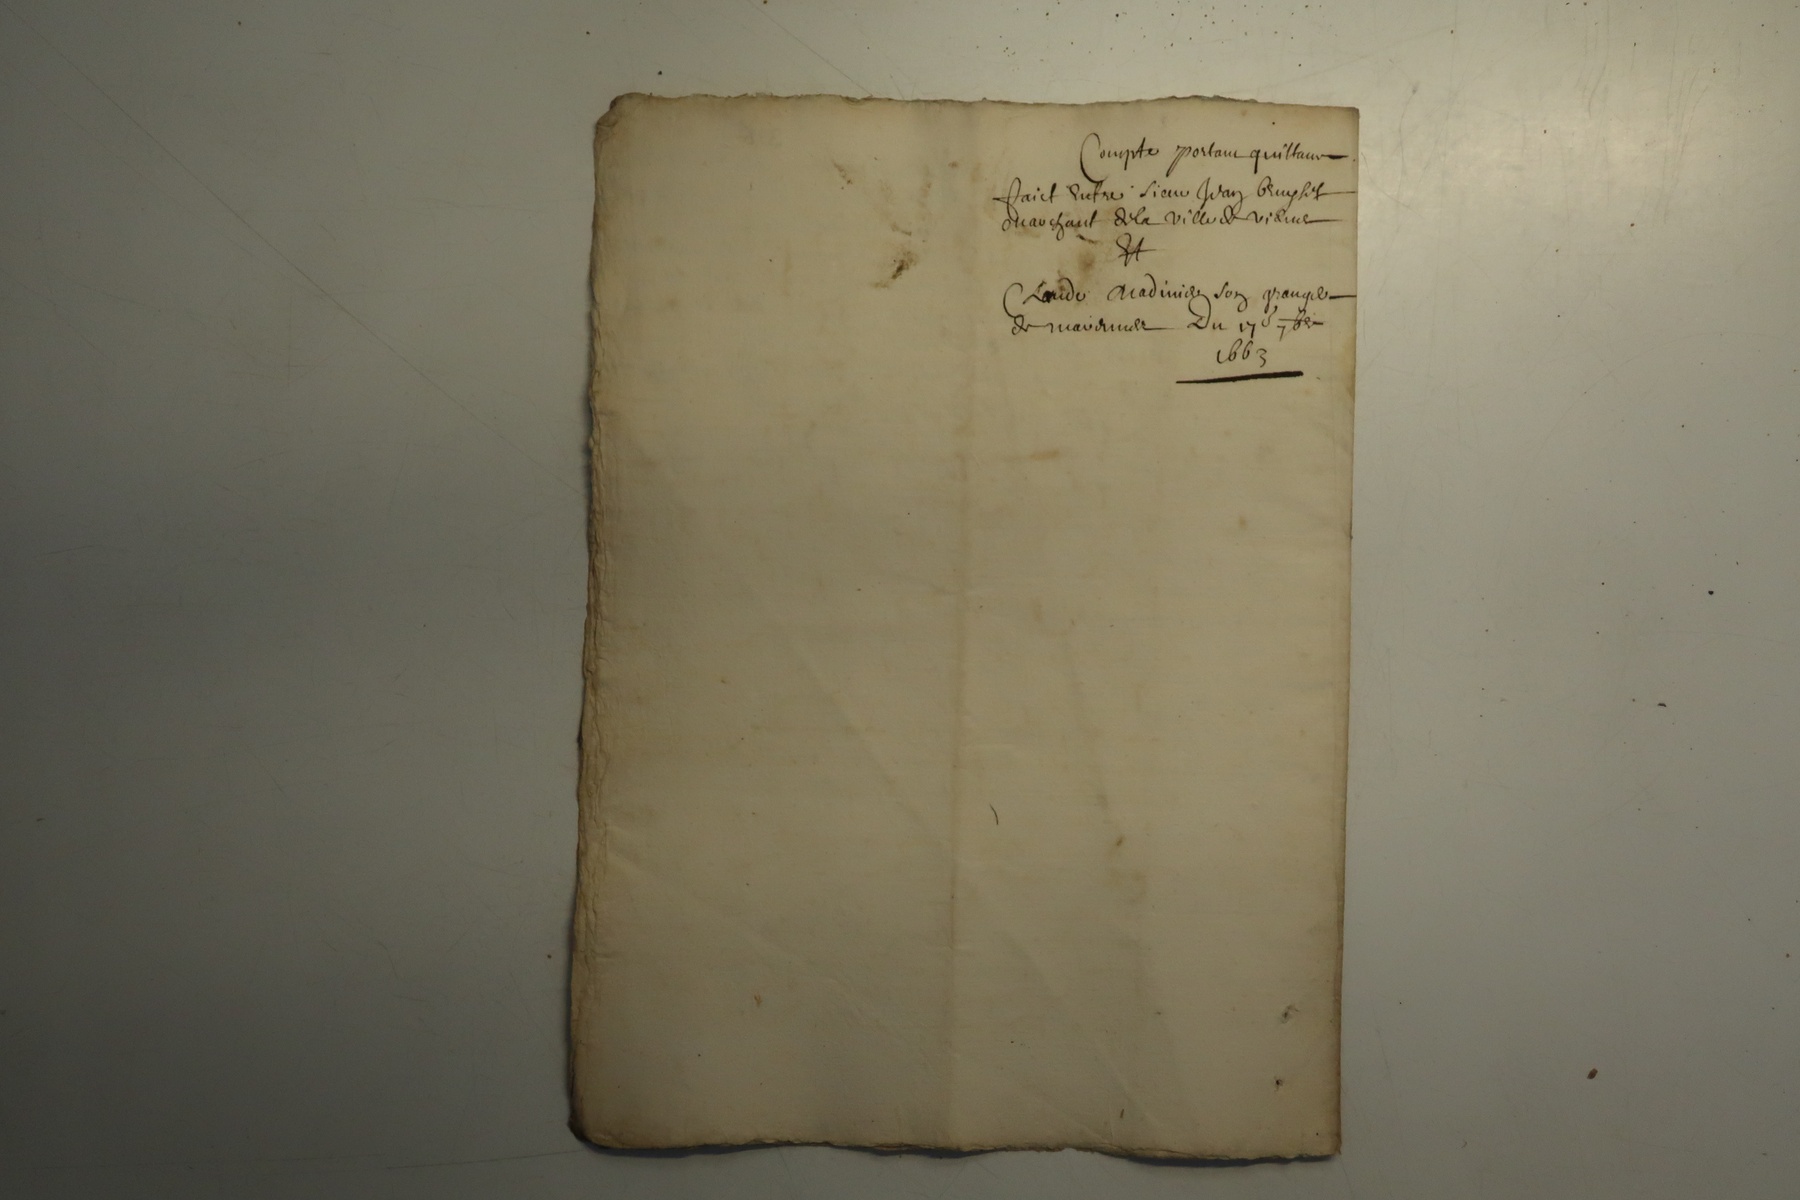 Compte portant quittance
faict entre sieur Jean
marchant de la ville de vienne
Et
Claude son granger
de Du 17e 7bre
1663